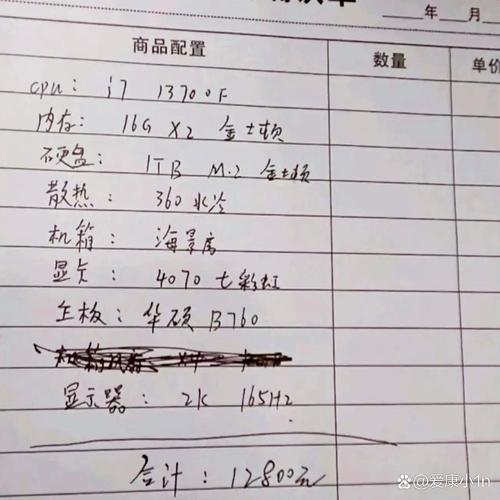 年 月
商品配置 数量 单价
cpu: i7 13700F
内存: 16G X2 金士顿
硬盘: 1TB M.2 金士顿
散热: 360水冷
机箱: 海景房
显卡: 4070 七彩虹
主板: 华硕 B760
显示器: 2K 165Hz
合计: 12800元
@爱康小1n